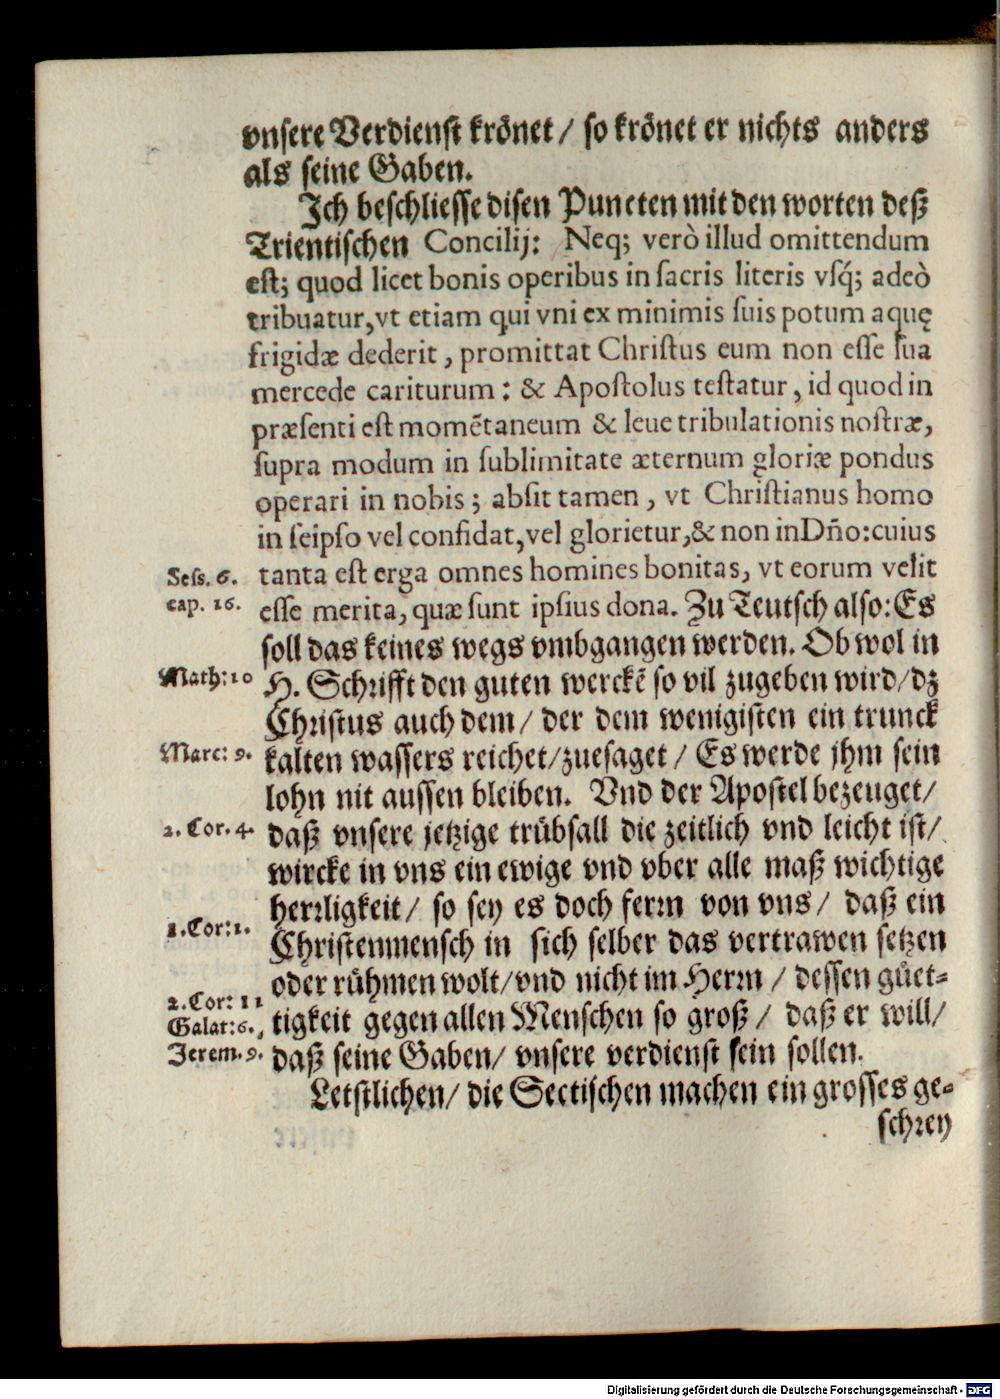 vnsere Verdienst krönet / so krönet er nichts anders
als seine Gaben.
Ich beschliesse disen Puncten mit den worten deß
Trientischen Concilij: Neq; verò illud omittendum
est; quod licet bonis operibus in sacris literis vsq́; adeò
tribuatur, vt etiam qui vni ex minimis suis potum aquę
frigidæ dederit, promittat Christus eum non esse sua
mercede cariturum: & Apostolus testatur, id quod in
præsenti est momẽtaneum & leue tribulationis nostræ,
supra modum in sublimitate æternum gloriæ pondus
operari in nobis; absit tamen, vt Christianus homo
in seipso vel confidat, vel glorietur, & non in Dño: cuius
Sess. 6.
tanta est erga omnes homines bonitas, vt eorum velit
cap. 16.
esse merita, quæ sunt ipsius dona. Zu Teutsch also: Es
soll das keines wegs vmbgangen werden. Ob wol in
Math: 10
H. Schrifft den guten werckẽ so vil zugeben wird / dz
Christus auch dem / der dem wenigisten ein trunck
Marc: 9.
kalten wassers reichet / zuesaget / Es werde jhm sein
lohn nit aussen bleiben. Vnd der Apostel bezeuget /
2. Cor. 4.
daß vnsere jetzige trübsall die zeitlich vnd leicht ist /
wircke in vns ein ewige vnd vber alle maß wichtige
herrligkeit / so sey es doch ferrn von vns / daß ein
1. Cor: 1.
Christenmensch in sich selber das vertrawen setzen
oder rühmen wolt / vnd nicht im Herrn / dessen güet-
2. Cor: 11
Galat: 6.,
tigkeit gegen allen Menschen so groß / daß er will /
Jerem. 9.
daß seine Gaben / vnsere verdienst sein sollen.
Letstlichen / die Sectischen machen ein grosses ge-
schrey
Digitalisierung gefördert durch die Deutsche Forschungsgemeinschaft - DFG